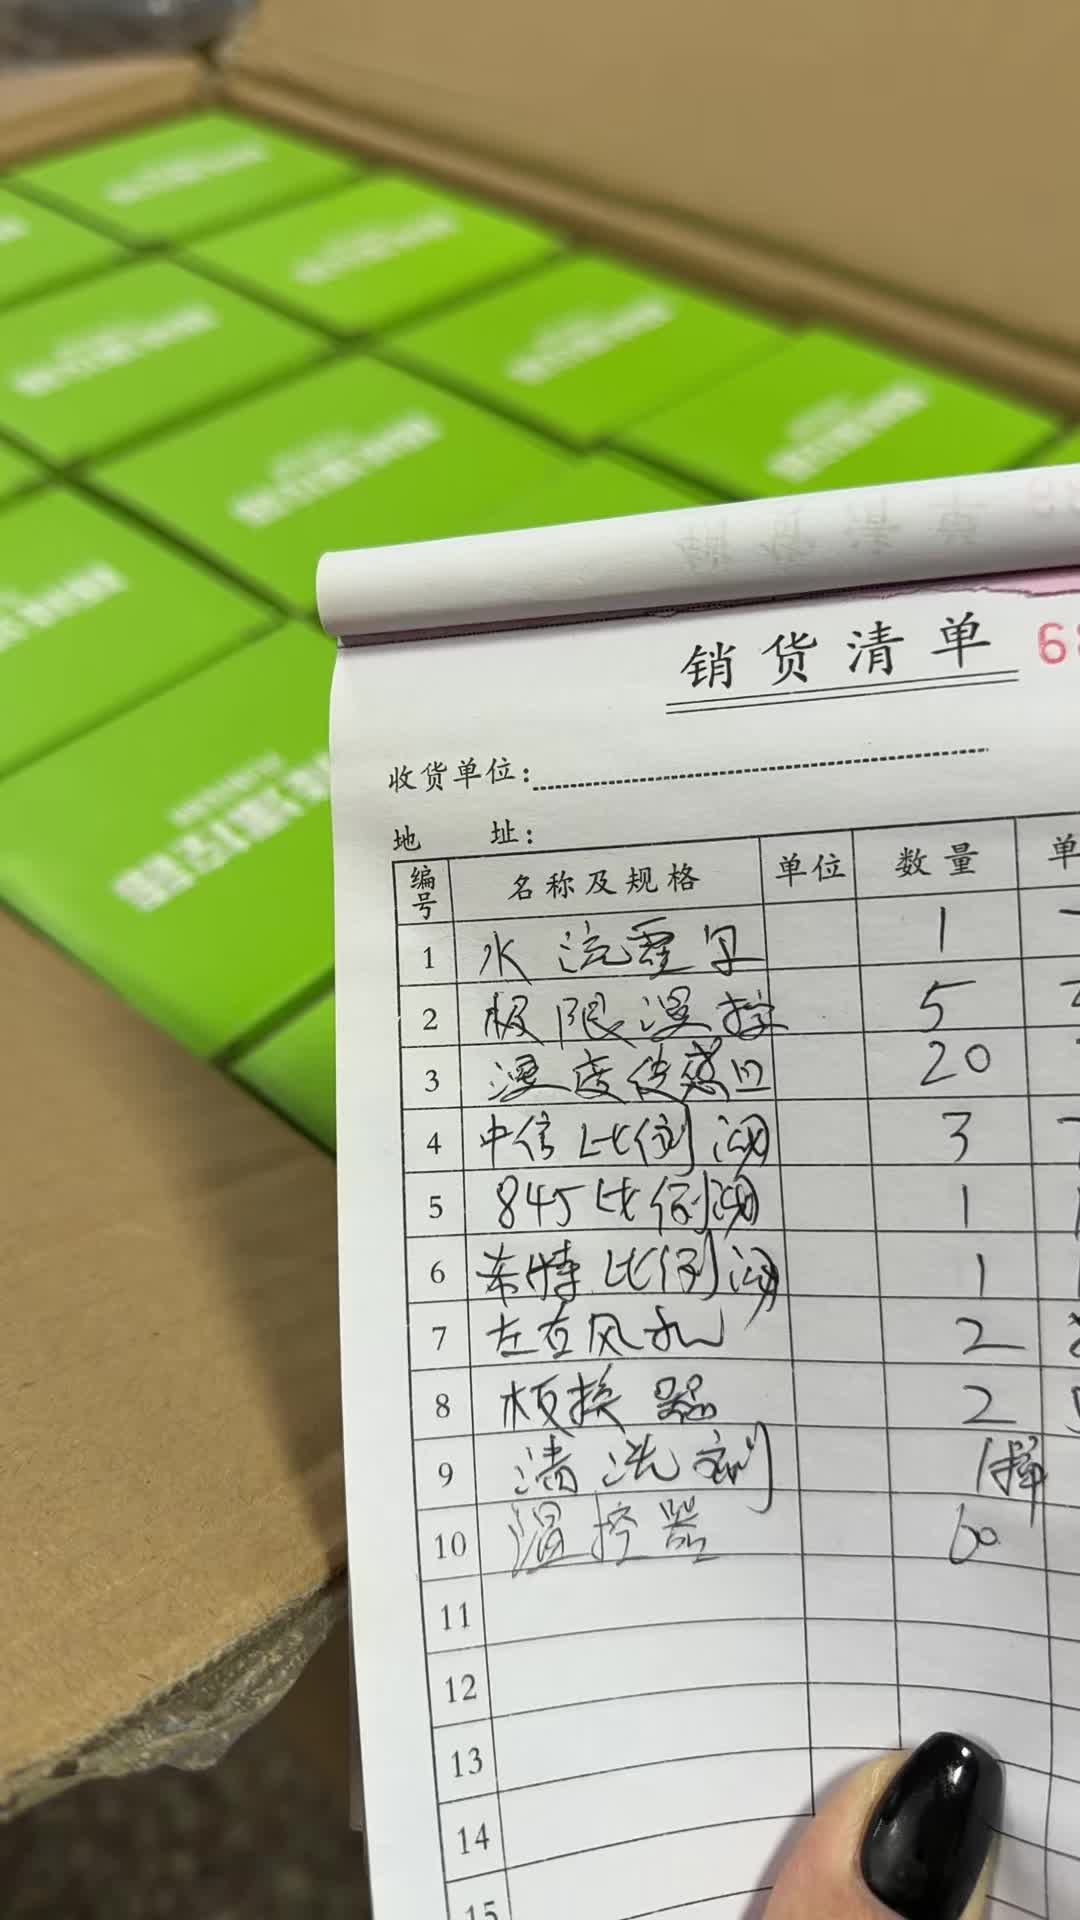 销货清单 68
收货单位:
地 址:
编号 名称及规格 单位 数量 单
1 水流霍尔 1
2 极限温控 5
3 温度传感口 20
4 中信比例阀 3
5 845比例阀 1
6 莱特比例阀 1
7 左右风机 2
8 板换器 2
9 清洗剂 1
10 温控器 60
11
12
13
14
15
温控器